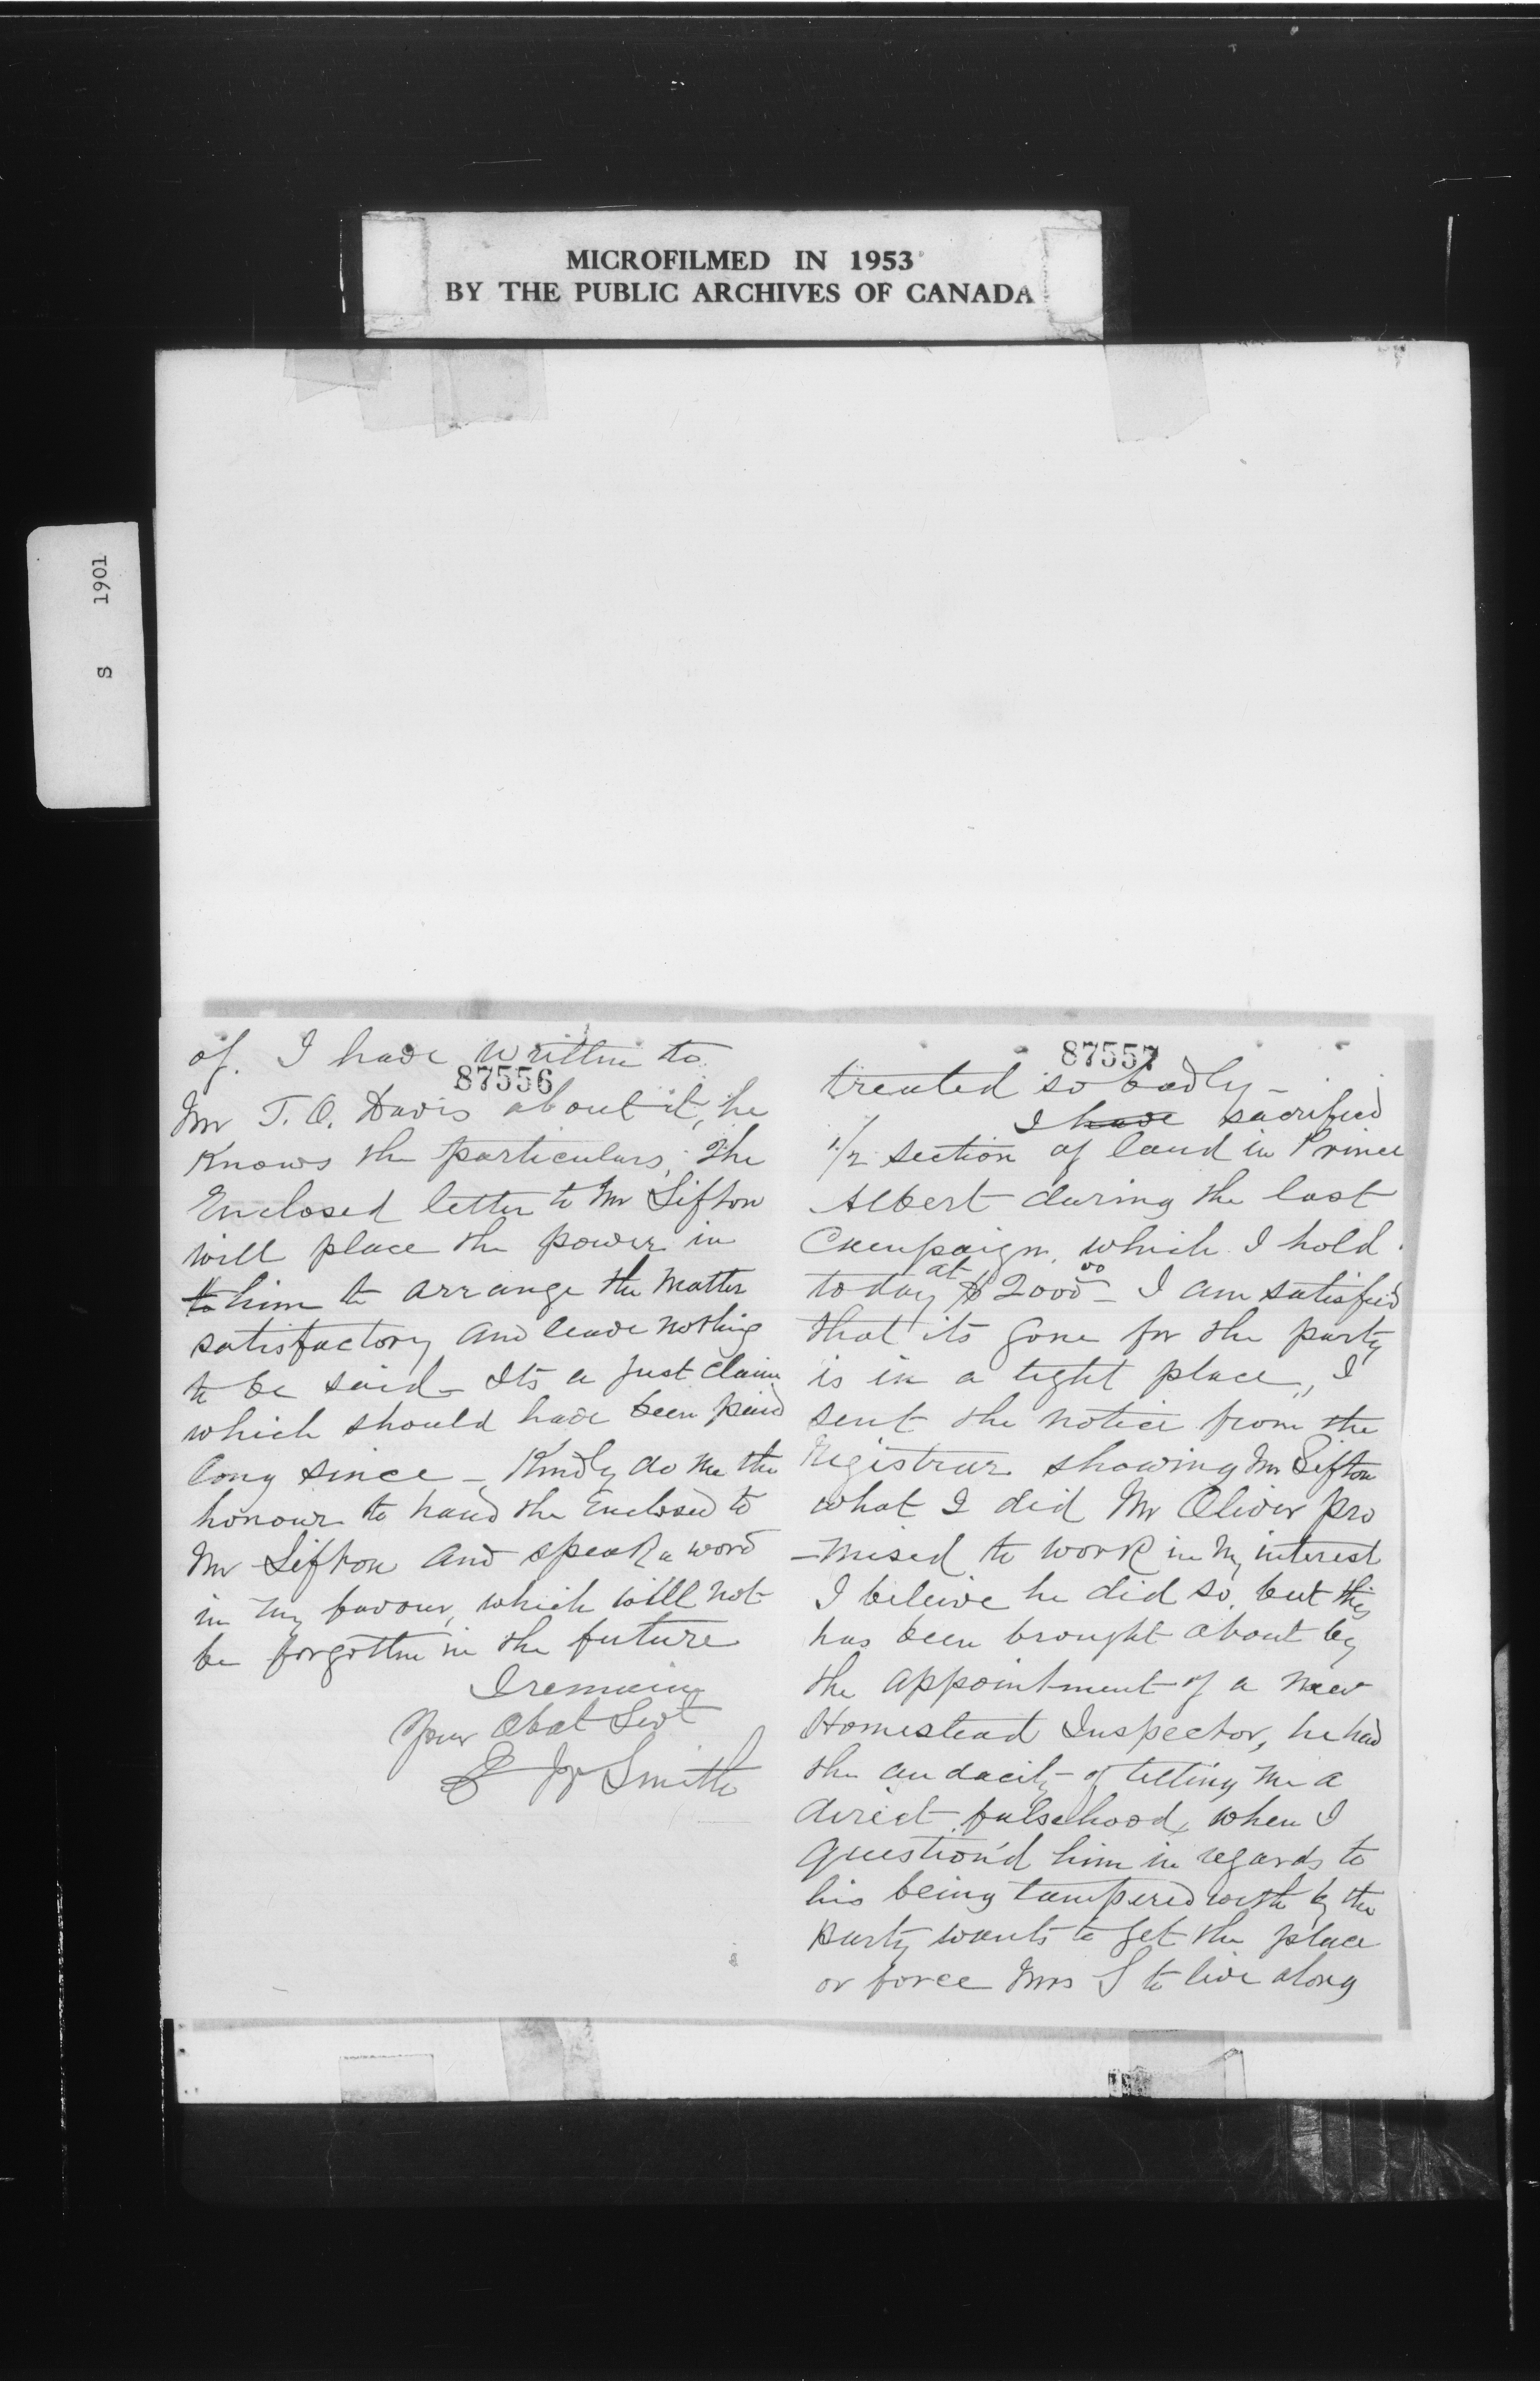 MICROFILMED IN 1953
BY THE PUBLIC ARCHIVES OF CANADA
S 1901
87556
of. I have written to
Mr T. O. Davis about it, he
Knows the particulars, The
Enclosed letter to Mr Sifton
will place the power in
to him to arrange the matter
satisfactory and leave nothing
to be said - Its a just claim
which should have been paid
long since - Kindly do me the
honour to hand the Enclosed to
Mr Sifton and speak a word
in my favour, which will not
be forgotten in the future
I remain
Your Obdt Servt
Smith
87557
treated so badly -
I have sacrificed
1/2 section of land in Prince
Albert during the last
Campaign, which I hold
today at $2000 00 - I am satisfied
that its gone for the party
is in a tight place, I
sent the notice from the
Registrar showing Mr Sifton
what I did Mr Oliver pro
-mised to work in my interest
I beleive he did so, but this
has been brought about by
the appointment of a new
Homestead Inspector, he had
the audacity of telling me a
direct falsehood, when I
question'd him in regards to
his being tampered with by the
party wants to get the place
or force Mrs S to live along